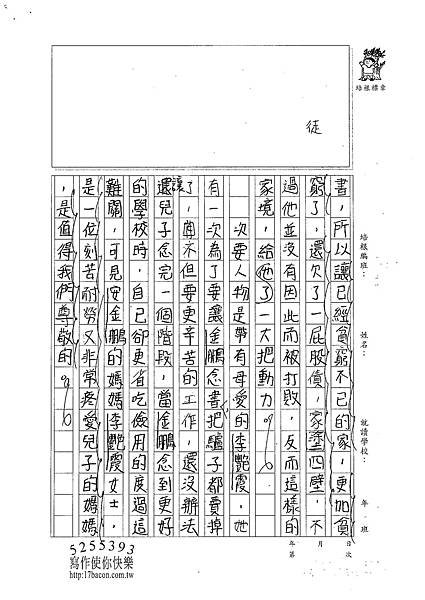 培根標章
徒
培根編班：
姓名：
就讀學校：
年 班
書，所以讓已經貧窮不已的家，更加貧
窮了，還欠了一屁股債，家塗四壁，不
過他並沒有因此而被打敗，反而這樣的
家境，給他了一大把動力。
次要人物是帶有母愛的李艷霞，她
有一次為了要讓金鵬念書把驢子都賣掉
了，不但要更辛苦的工作，還沒辦法
讓兒子念完一個階段，當金鵬念到更好
的學校時，自己卻更省吃儉用的度過這
難關，可見安金鵬的媽媽李艷霞女士，
是一位刻苦耐勞又非常疼愛兒子的媽媽
，是值得我們尊敬的。
年 月 日
第 次
5255393
寫作使你快樂
http://17bacon.com.tw